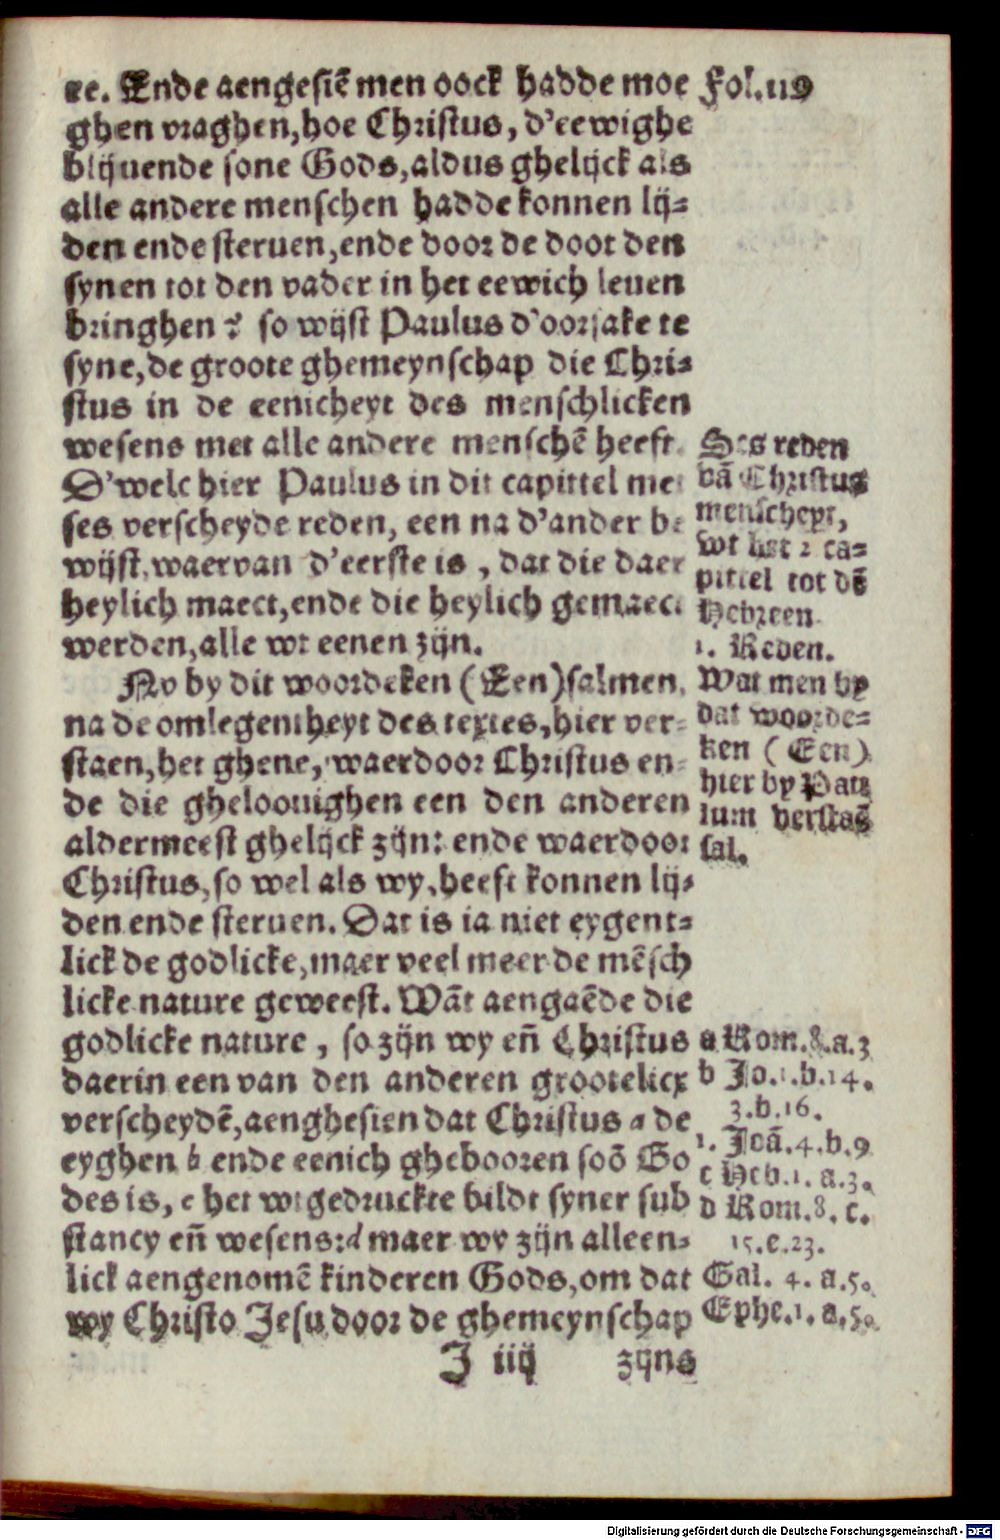 re. Ende aengesiē men oock hadde moe
ghen vraghen, hoe Christus, d'eewighe
blijuende sone Gods, aldus ghelijck als
alle andere menschen hadde konnen lij-
den ende steruen, ende door de doot den
synen tot den vader in het eewich leuen
bringhen? so wijst Paulus d'oorsake te
syne, de groote ghemeynschap die Chri-
stus in de eenicheyt des menschlicken
wesens met alle andere menschē heeft.
D'welc hier Paulus in dit capittel me
ses verscheyde reden, een na d'ander be
wijst, waervan d'eerste is, dat die daer
heylich maect, ende die heylich gemaect
werden, alle wt eenen zijn.
Nv by dit woordeken (Een) salmen,
na de omlegentheyt des textes, hier ver-
staen, het ghene, waerdoor Christus en-
de die gheloouighen een den anderen
aldermeest ghelijck zijn: ende waerdoor
Christus, so wel als wy, heeft konnen lij-
den ende steruen. Dat is ia niet eygent-
lick de godlicke, maer veel meer de mēsch
licke nature geweest. Wāt aengaēde die
godlicke nature, so zijn wy eñ Christus
daerin een van den anderen grootelicx
verscheydē, aenghesien dat Christus a de
eyghen b ende eenich ghebooren soō Go
des is, c het wtgedruckte bildt syner sub
stancy eñ wesens: d maer wy zijn alleen-
lick aengenomē kinderen Gods, om dat
wy Christo Jesu door de ghemeynschap
J iiij zijns
Fol. 119
Ses reden
vā Christus
menscheyt,
wt het 2 ca-
pittel tot dē
Hebreen
1. Reden.
Wat men by
dat woorde-
ken (Een)
hier by Pau
lum verstaē
sal.
a Rom. 8. a. 3
b Jo. 1. b. 14.
3. b. 16.
1. Joā. 4. b. 9
c Heb. 1. a. 3.
d Rom. 8. c.
15. e. 23.
Gal. 4. a. 5.
Ephe. 1. a. 5.
Digitalisierung gefördert durch die Deutsche Forschungsgemeinschaft - DFG